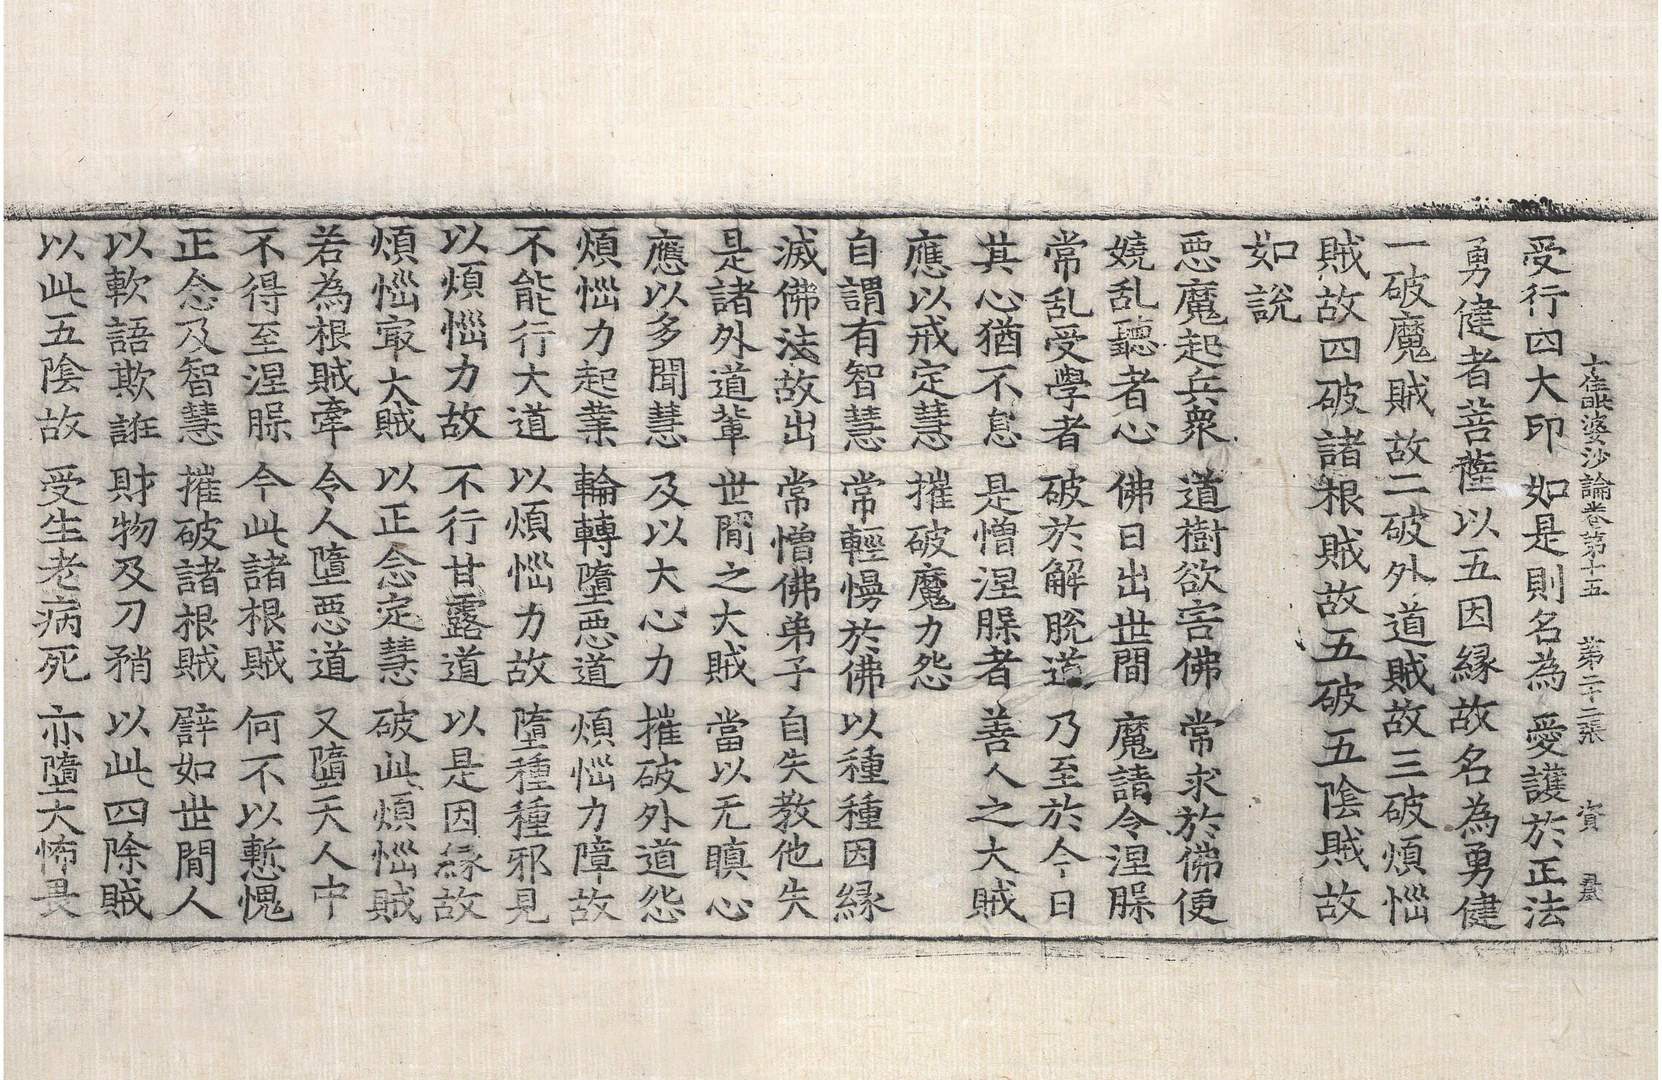 十住毗婆沙論卷第十五　第二十二張　資
受行四大印　如是則名為　愛護於正法
勇健者菩薩以五因緣故名為勇健
一破魔賊故二破外道賊故三破煩惱
賊故四破諸根賊故五破五陰賊故
如說
惡魔起兵衆　道樹欲害佛　常求於佛便
嬈乱聽者心　佛日出世間　魔請令涅槃
常乱受學者　破於解脫道　乃至於今日
其心猶不息　是憎涅槃者　善人之大賊
應以戒定慧　摧破魔力怨
自謂有智慧　常輕慢於佛　以種種因緣
滅佛法故出　常憎佛弟子　自失教他失
是諸外道輩　世閒之大賊　當以无瞋心
應以多聞慧　及以大心力　摧破外道怨
煩惱力起業　輪轉墮惡道　煩惱力障故
不能行大道　以煩惱力故　墮種種邪見
以煩惱力故　不行甘露道　以是因緣故
煩惱冣大賊　以正念定慧　破此煩惱賊
若為根賊牽　令人墮惡道　又墮天人中
不得至涅槃　今此諸根賊　何不以慙愧
正念及智慧　摧破諸根賊　譬如世閒人
以軟語欺誑　財物及刀矟　以此四除賊
以此五陰故　受生老病死　亦墮大怖畏